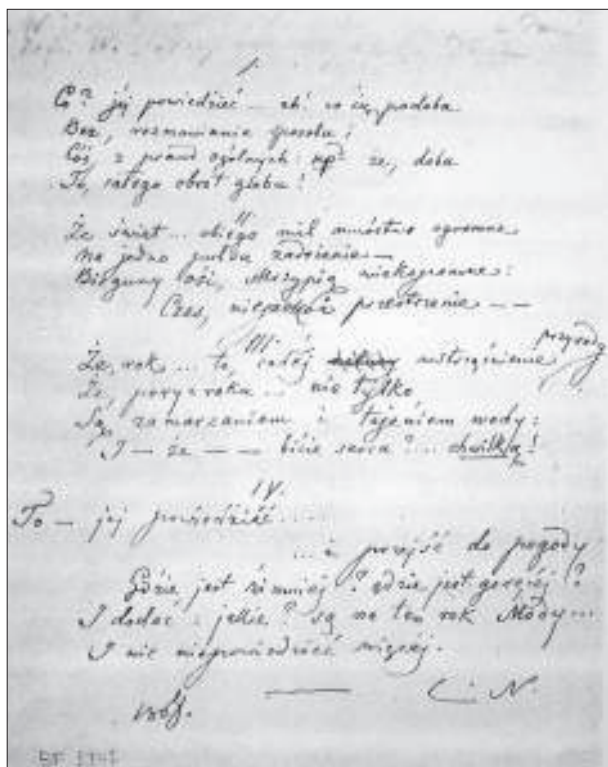 1.
Co? jéj powiedzieć — ach! co się podoba
Bez, rozmawiania sposobu!
Cóś, z prawd ogólnych: np. że, doba
To, całego obrót globu!
II
Że świat... obiega mil mnóstwo ogromne
Na jedno pulsu zadrżenie —
Bieguny osi, skrzypią wiekopomne:
Czas, niepokoi przestrzenie — —
III.
Że, rok... to, całéj wstrząśnienie przyrody
Że, pory-roku... nie tylko
Są, zamarzaniem i tajeniem wody:
I — że — — bicie serca?... chwilką!
IV.
To — jej powiedzieć....
...i przejść do pogody
Gdzie jest zimniéj? gdzie jest goręcéj?
I dodać: jakie? są na ten rok Mody...
I nic niepowiedzieć więcej.
C. N.